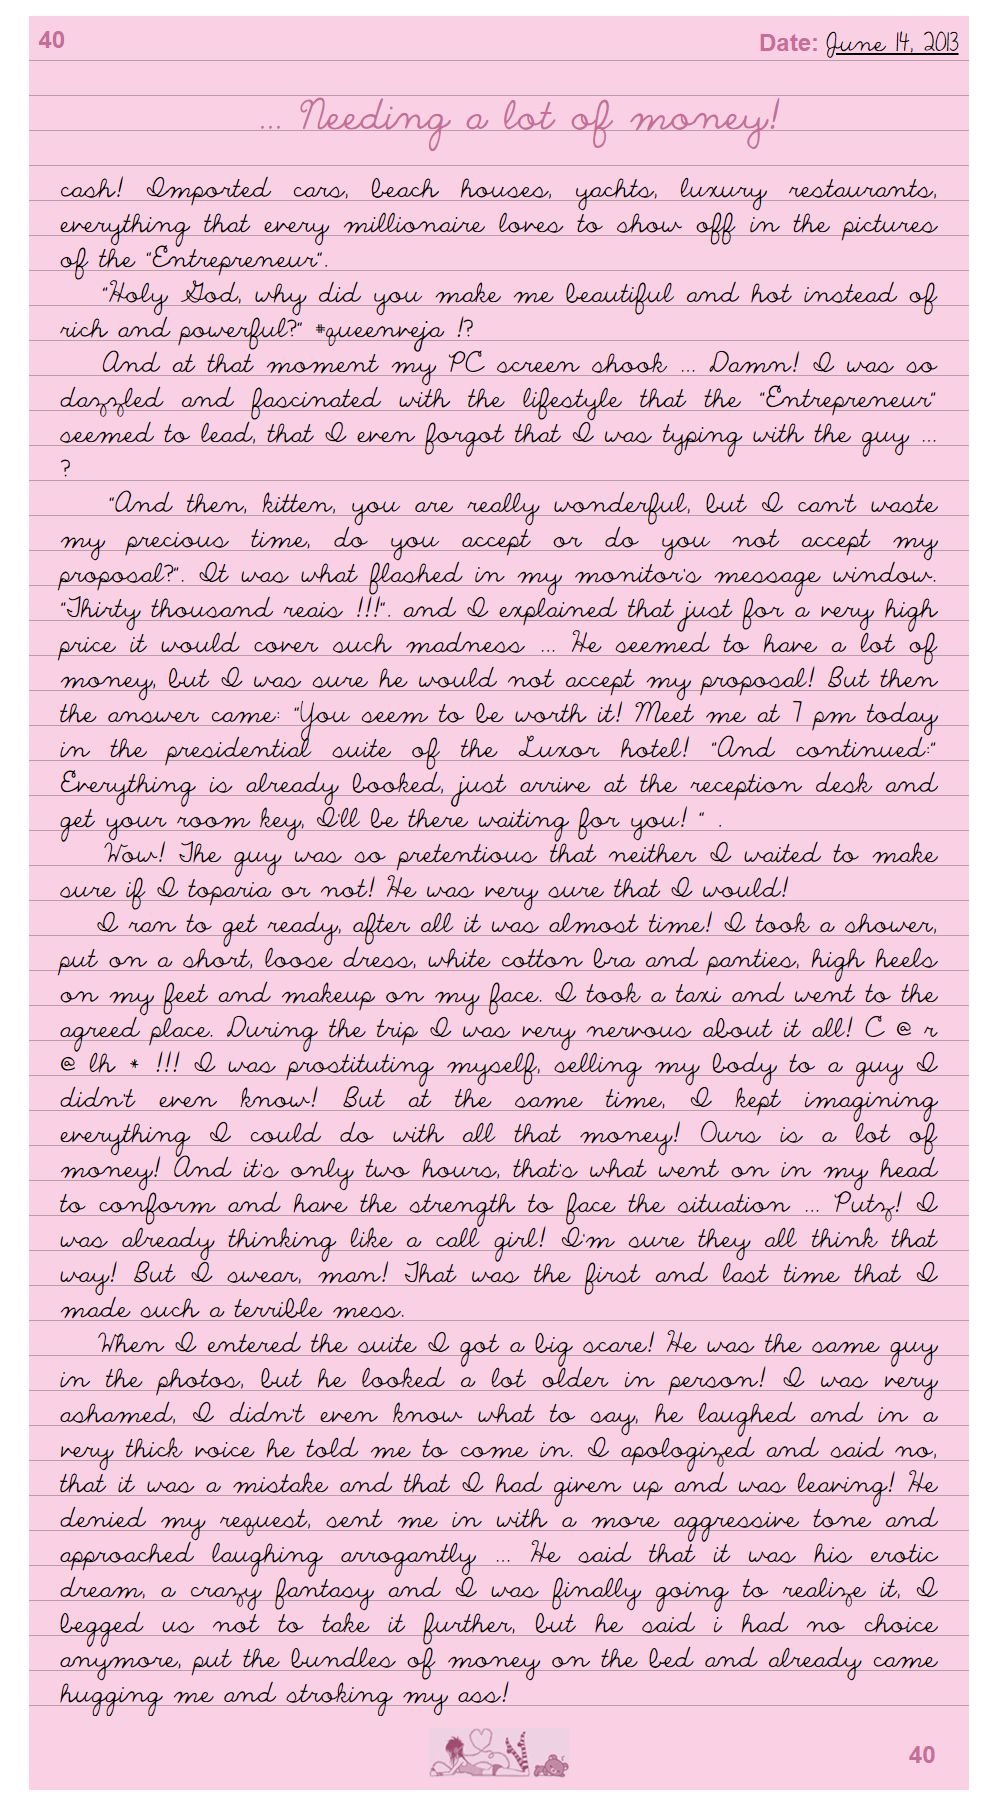 40
Date: June 14, 2013
... Needing a lot of money!
cash! Imported cars, beach houses, yachts, luxury restaurants,
everything that every millionaire loves to show off in the pictures
of the "Entrepreneur".
"Holy God, why did you make me beautiful and hot instead of
rich and powerful?" #queenveja !?
And at that moment my PC screen shook ... Damn! I was so
dazzled and fascinated with the lifestyle that the "Entrepreneur"
seemed to lead, that I even forgot that I was typing with the guy ...
?
"And then, kitten, you are really wonderful, but I can't waste
my precious time, do you accept or do you not accept my
proposal?". It was what flashed in my monitor's message window.
"Thirty thousand reais !!!". and I explained that just for a very high
price it would cover such madness ... He seemed to have a lot of
money, but I was sure he would not accept my proposal! But then
the answer came: "You seem to be worth it! Meet me at 7 pm today
in the presidential suite of the Luxor hotel! "And continued:"
Everything is already booked, just arrive at the reception desk and
get your room key, I'll be there waiting for you! " .
Wow! The guy was so pretentious that neither I waited to make
sure if I toparia or not! He was very sure that I would!
I ran to get ready, after all it was almost time! I took a shower,
put on a short, loose dress, white cotton bra and panties, high heels
on my feet and makeup on my face. I took a taxi and went to the
agreed place. During the trip I was very nervous about it all! C @ r
@ lh * !!! I was prostituting myself, selling my body to a guy I
didn't even know! But at the same time, I kept imagining
everything I could do with all that money! Ours is a lot of
money! And it's only two hours, that's what went on in my head
to conform and have the strength to face the situation ... Putz! I
was already thinking like a call girl! I'm sure they all think that
way! But I swear, man! That was the first and last time that I
made such a terrible mess.
When I entered the suite I got a big scare! He was the same guy
in the photos, but he looked a lot older in person! I was very
ashamed, I didn't even know what to say, he laughed and in a
very thick voice he told me to come in. I apologized and said no,
that it was a mistake and that I had given up and was leaving! He
denied my request, sent me in with a more aggressive tone and
approached laughing arrogantly ... He said that it was his erotic
dream, a crazy fantasy and I was finally going to realize it, I
begged us not to take it further, but he said i had no choice
anymore, put the bundles of money on the bed and already came
hugging me and stroking my ass!
40